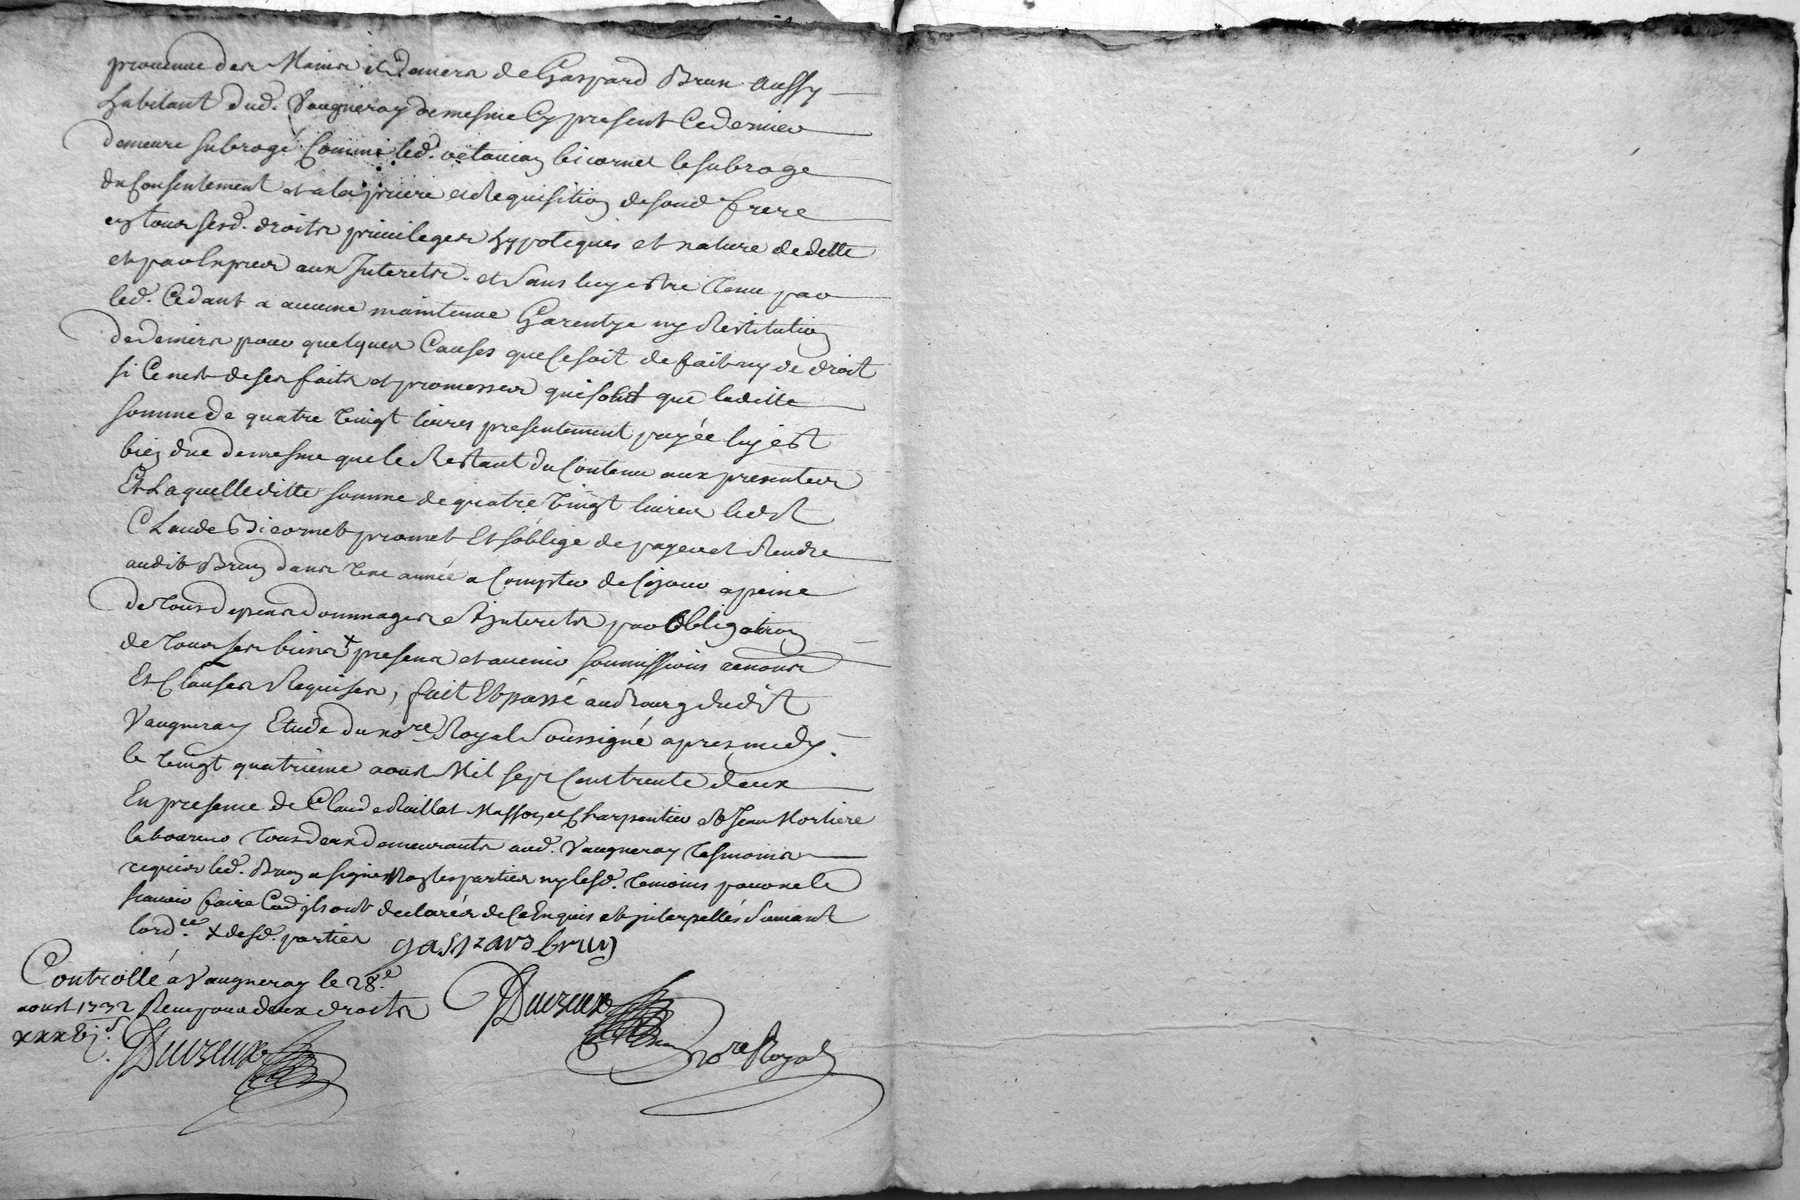 provenue des Mains et deniers de Gaspard Brun aussy
habitant dud. Vaugneray de mesme Cy present Ce dernier
demeure subrogé Comme led. octavien bicornet le subroge
du Consentement et a la priere et Requisition de sond frere
en tous sesd. droits privileges hypoteques et nature de dette
et par Exprez aux Interets. et sans luy estre Tenu par
led. Cedant a aucune maintenue Garentye ny Restitution
de deniers pour quelques Causes que Ce soit de fait ny de droit
si Ce nest de ses faits et promesses qui sont que laditte
somme de quatre vingt livres presentement payée luy est
bien due de mesme que le Restant du Contenu aux presentes
Et Laquelleditte somme de quatre vingt livres ledit
Claude Bicornet promet Et soblige de payer et Rendre
audit Brun dans Une année a Compter de Ce jour a peine
de Tous depens dommages et Interets par obligation
de Tous ses biens + presens et avenir soumissions renons
Et Clauses Requises, fait Et passé au Bourg dudit
Vaugneray Etude du nore Royal soussigné apres midy
le vingt quatrieme aoust Mil sept Cent trente deux
En presence de Claude Raillat Masson et Charpentier et Jean Mortiere
laboureur Tous deux demeurants aud. Vaugneray Tesmoins
requis led. Brun a signé Non les parties ny lesd. Temoins pour ne le
scavoir faire Comme ils ont declarés de Ce Enquis et interpellés suivant
lordce. + desd. parties gaspard brun
Controllé a Vaugneray le 28e
aoust 1732 Reçu pour deux droits
xxxvj s. Duvzeux
Duvzeux
nore Royal